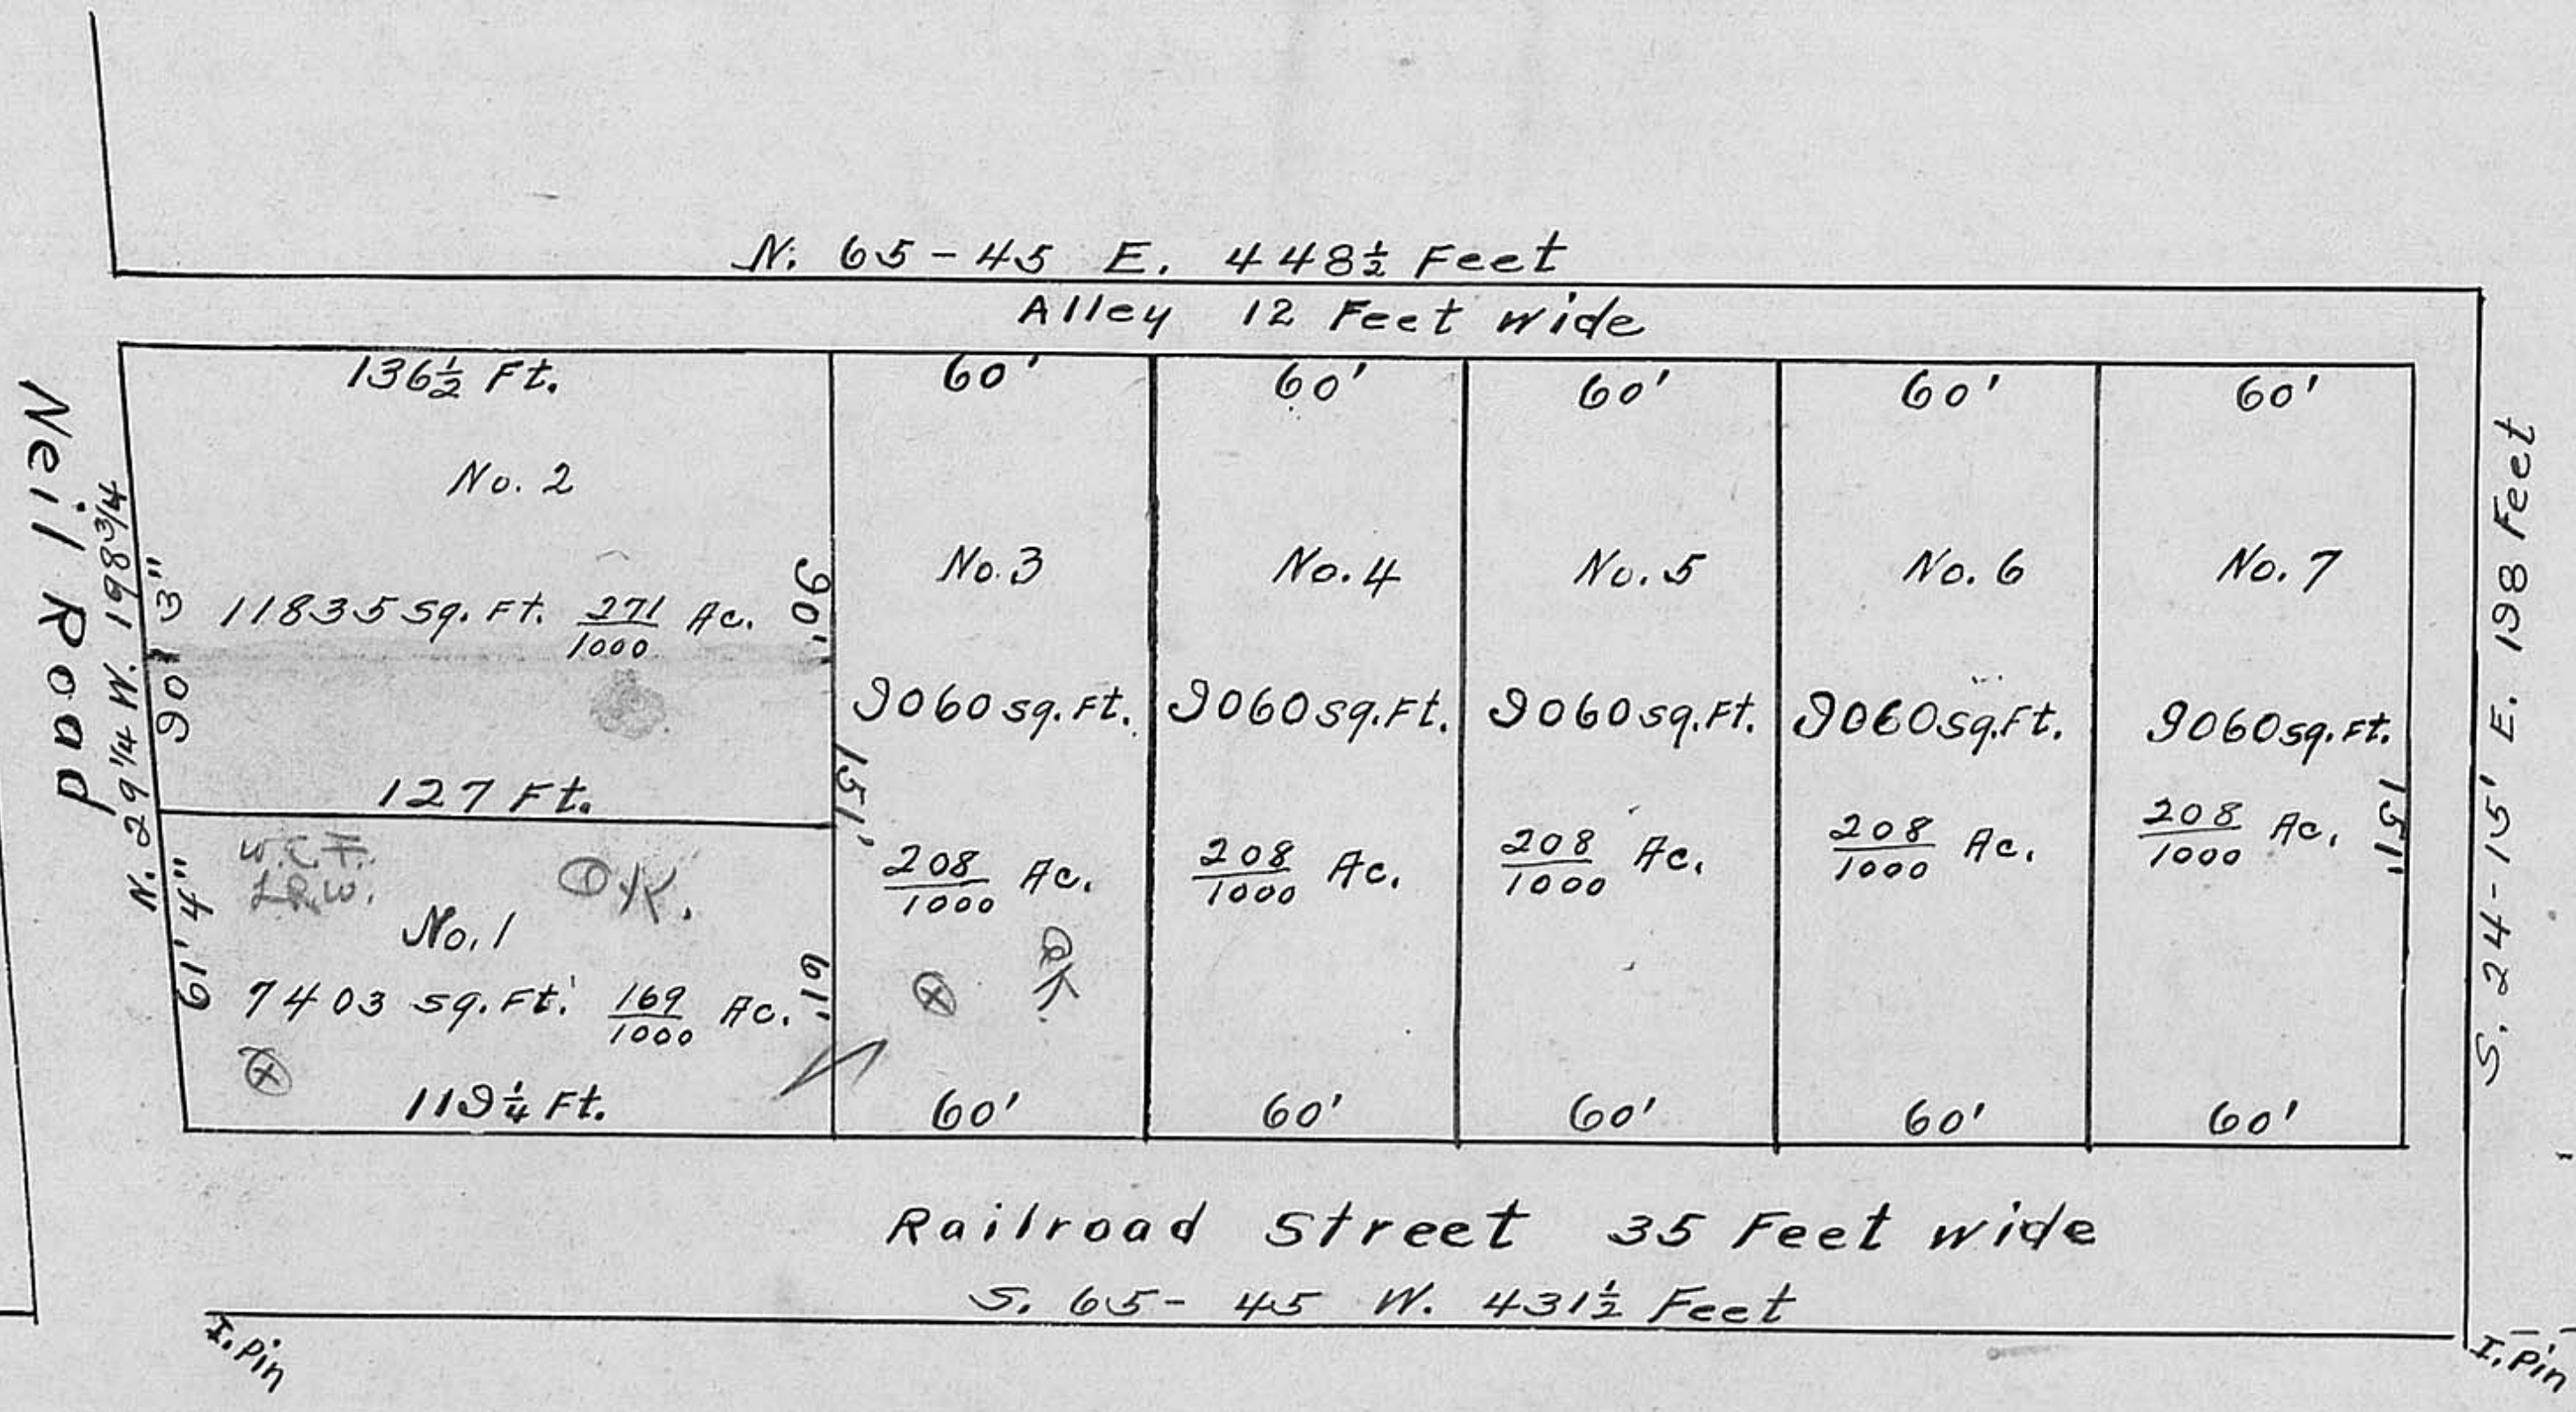 N. 65-45 E. 448½ Feet
Alley 12 Feet wide
Neil Road
N. 29 1/4 W. 198 3/4
136½ Ft.
No. 2
90' 3"
11835 Sq. Ft. 271/1000 Ac.
90'
127 Ft.
W.C.F.
O.K.
No. 1
61' 4"
7403 sq. Ft. 169/1000 Ac.
61'
119¼ Ft.
60'
No. 3
9060 sq. Ft.
151'
208/1000 Ac.
OK.
60'
60'
No. 4
9060 sq. Ft.
208/1000 Ac.
60'
60'
No. 5
9060 sq. Ft.
208/1000 Ac.
60'
60'
No. 6
9060 sq. Ft.
208/1000 Ac.
60'
60'
No. 7
9060 sq. Ft.
208/1000 Ac.
151'
60'
S. 24-15' E. 198 Feet
Railroad Street 35 Feet wide
S. 65-45 W. 431½ Feet
I. Pin
I. Pin